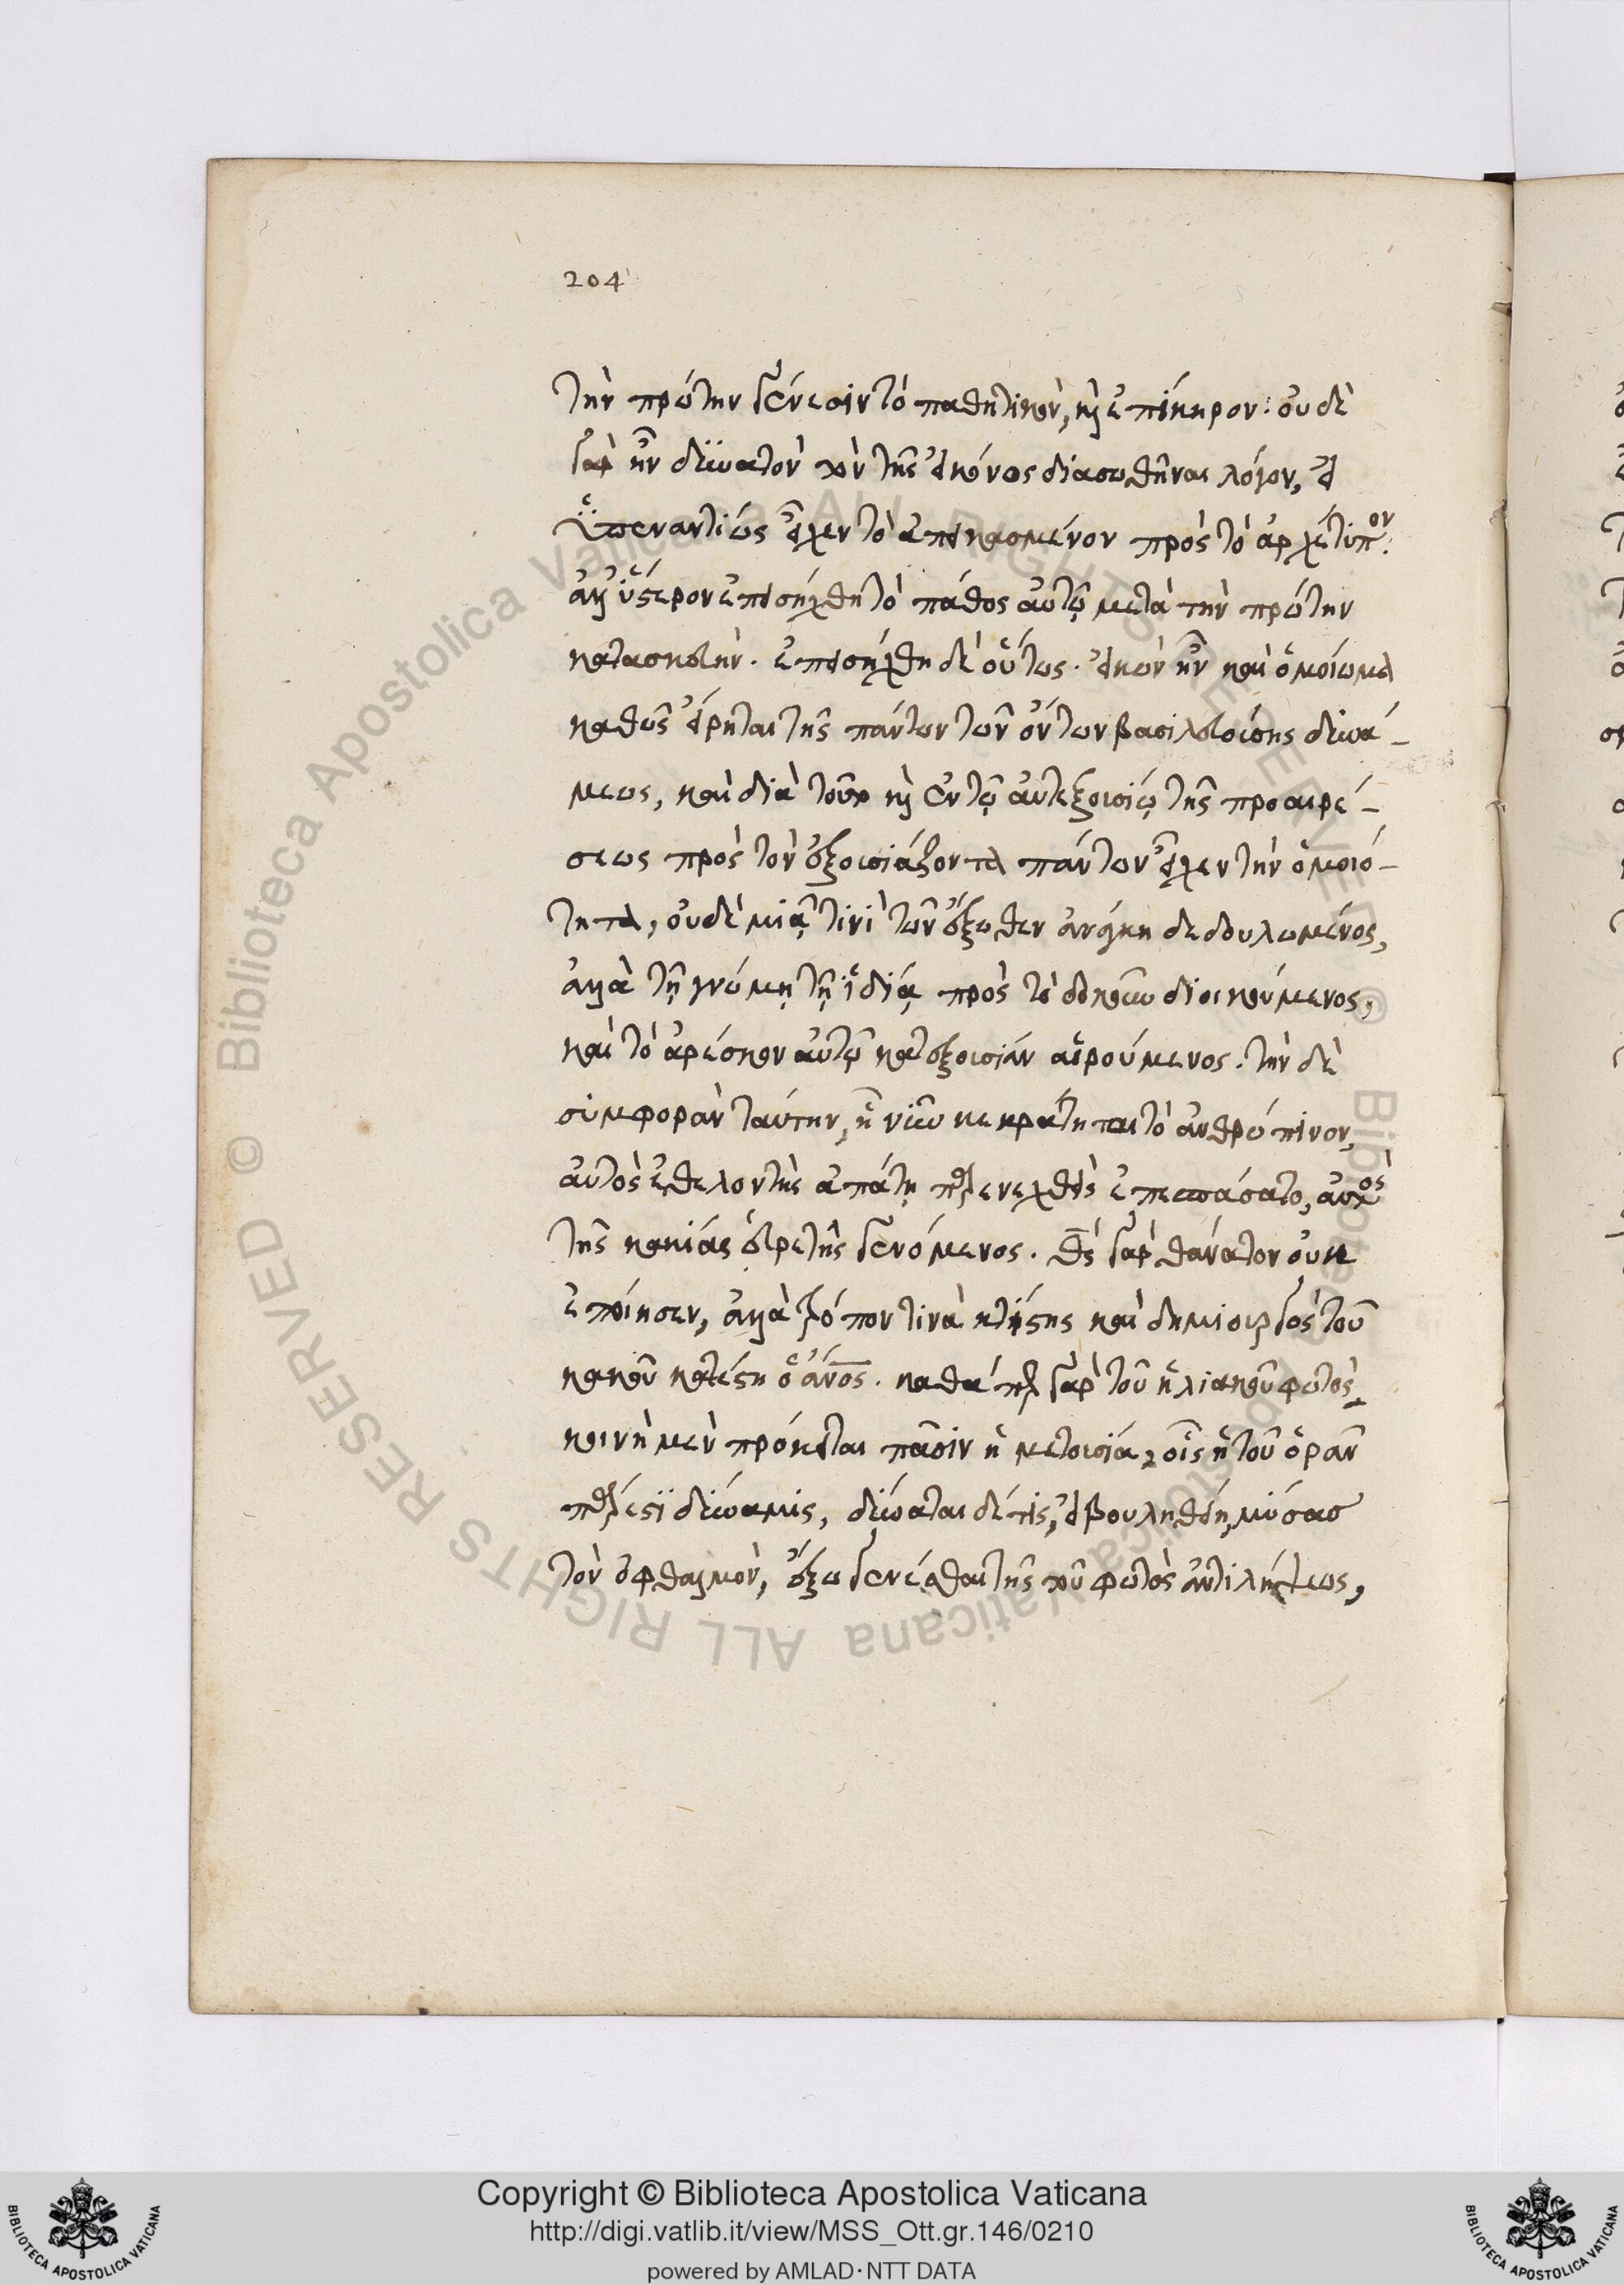 204
τὴν πρώτην γένεσιν τὸ παθητικὸν, κὶ ἐπίκηρον· οὐδὲ
γὰρ ἦν δυνατὸν τὸν τῆς εἰκόνος διασωθῆναι λόγον, εἰ
ὑπεναντίως εἶχεν τὸ ἀπεικασμένον πρὸς τὸ ἀρχέτυπον·
ἀλλ' ὕστερον ἐπεισήχθη τὸ πάθος αὐτῷ μετὰ τὴν πρώτην
κατασκευήν. ἐπεισήχθη δὲ οὕτως. εἰκὼν ἦν καὶ ὁμοίωμα
καθὼς εἴρηται τῆς πάντων τῶν ὄντων βασιλευούσης δυνά-
μεως, καὶ διὰ τοῦτο κὶ ἐν τῷ αὐτεξουσίῳ τῆς προαιρέ-
σεως πρὸς τὸν ἐξουσιάζοντα πάντων εἶχεν τὴν ὁμοιό-
τητα, οὐδὲ μιᾷ τινὶ τῶν ἔξωθεν ἀνάγκη δεδουλωμένος,
ἀλλὰ τῇ γνώμῃ τῇ ἰδίᾳ πρὸς τὸ δοκοῦν διοικούμενος,
καὶ τὸ ἀρέσκον αὐτῷ κατεξουσίαν αἱρούμενος. τὴν δὲ
συμφορὰν ταύτην, ᾗ νῦν κεκράτηται τὸ ἀνθρώπινον,
αὐτὸς ἐθελοντὴς ἀπάτῃ παρενεχθεὶς ἐπεσπάσατο, αὐτὸς
τῆς κακίας εὑρετὴς γενόμενος. θς γὰρ θάνατον οὐκ
ἐποίησεν, ἀλλὰ τρόπον τινὰ κτίστης καὶ δημιουργὸς τοῦ
κακοῦ κατέστη ὁ ἄνος. καθάπερ γὰρ τοῦ ἡλιακοῦ φωτὸς
κοινὴ μὲν πρόκειται πᾶσιν ἡ μετουσία, οἷς ἡ τοῦ ὁρᾶν
πάρεστι δύναμις, δύναται δέ τις, εἰ βουληθείη, μύσας
τὸν ὀφθαλμὸν, ἔξω γενέσθαι τῆς τοῦ φωτὸς ἀντιλήψεως,
Copyright © Biblioteca Apostolica Vaticana
http://digi.vatlib.it/view/MSS_Ott.gr.146/0210
powered by AMLAD·NTT DATA